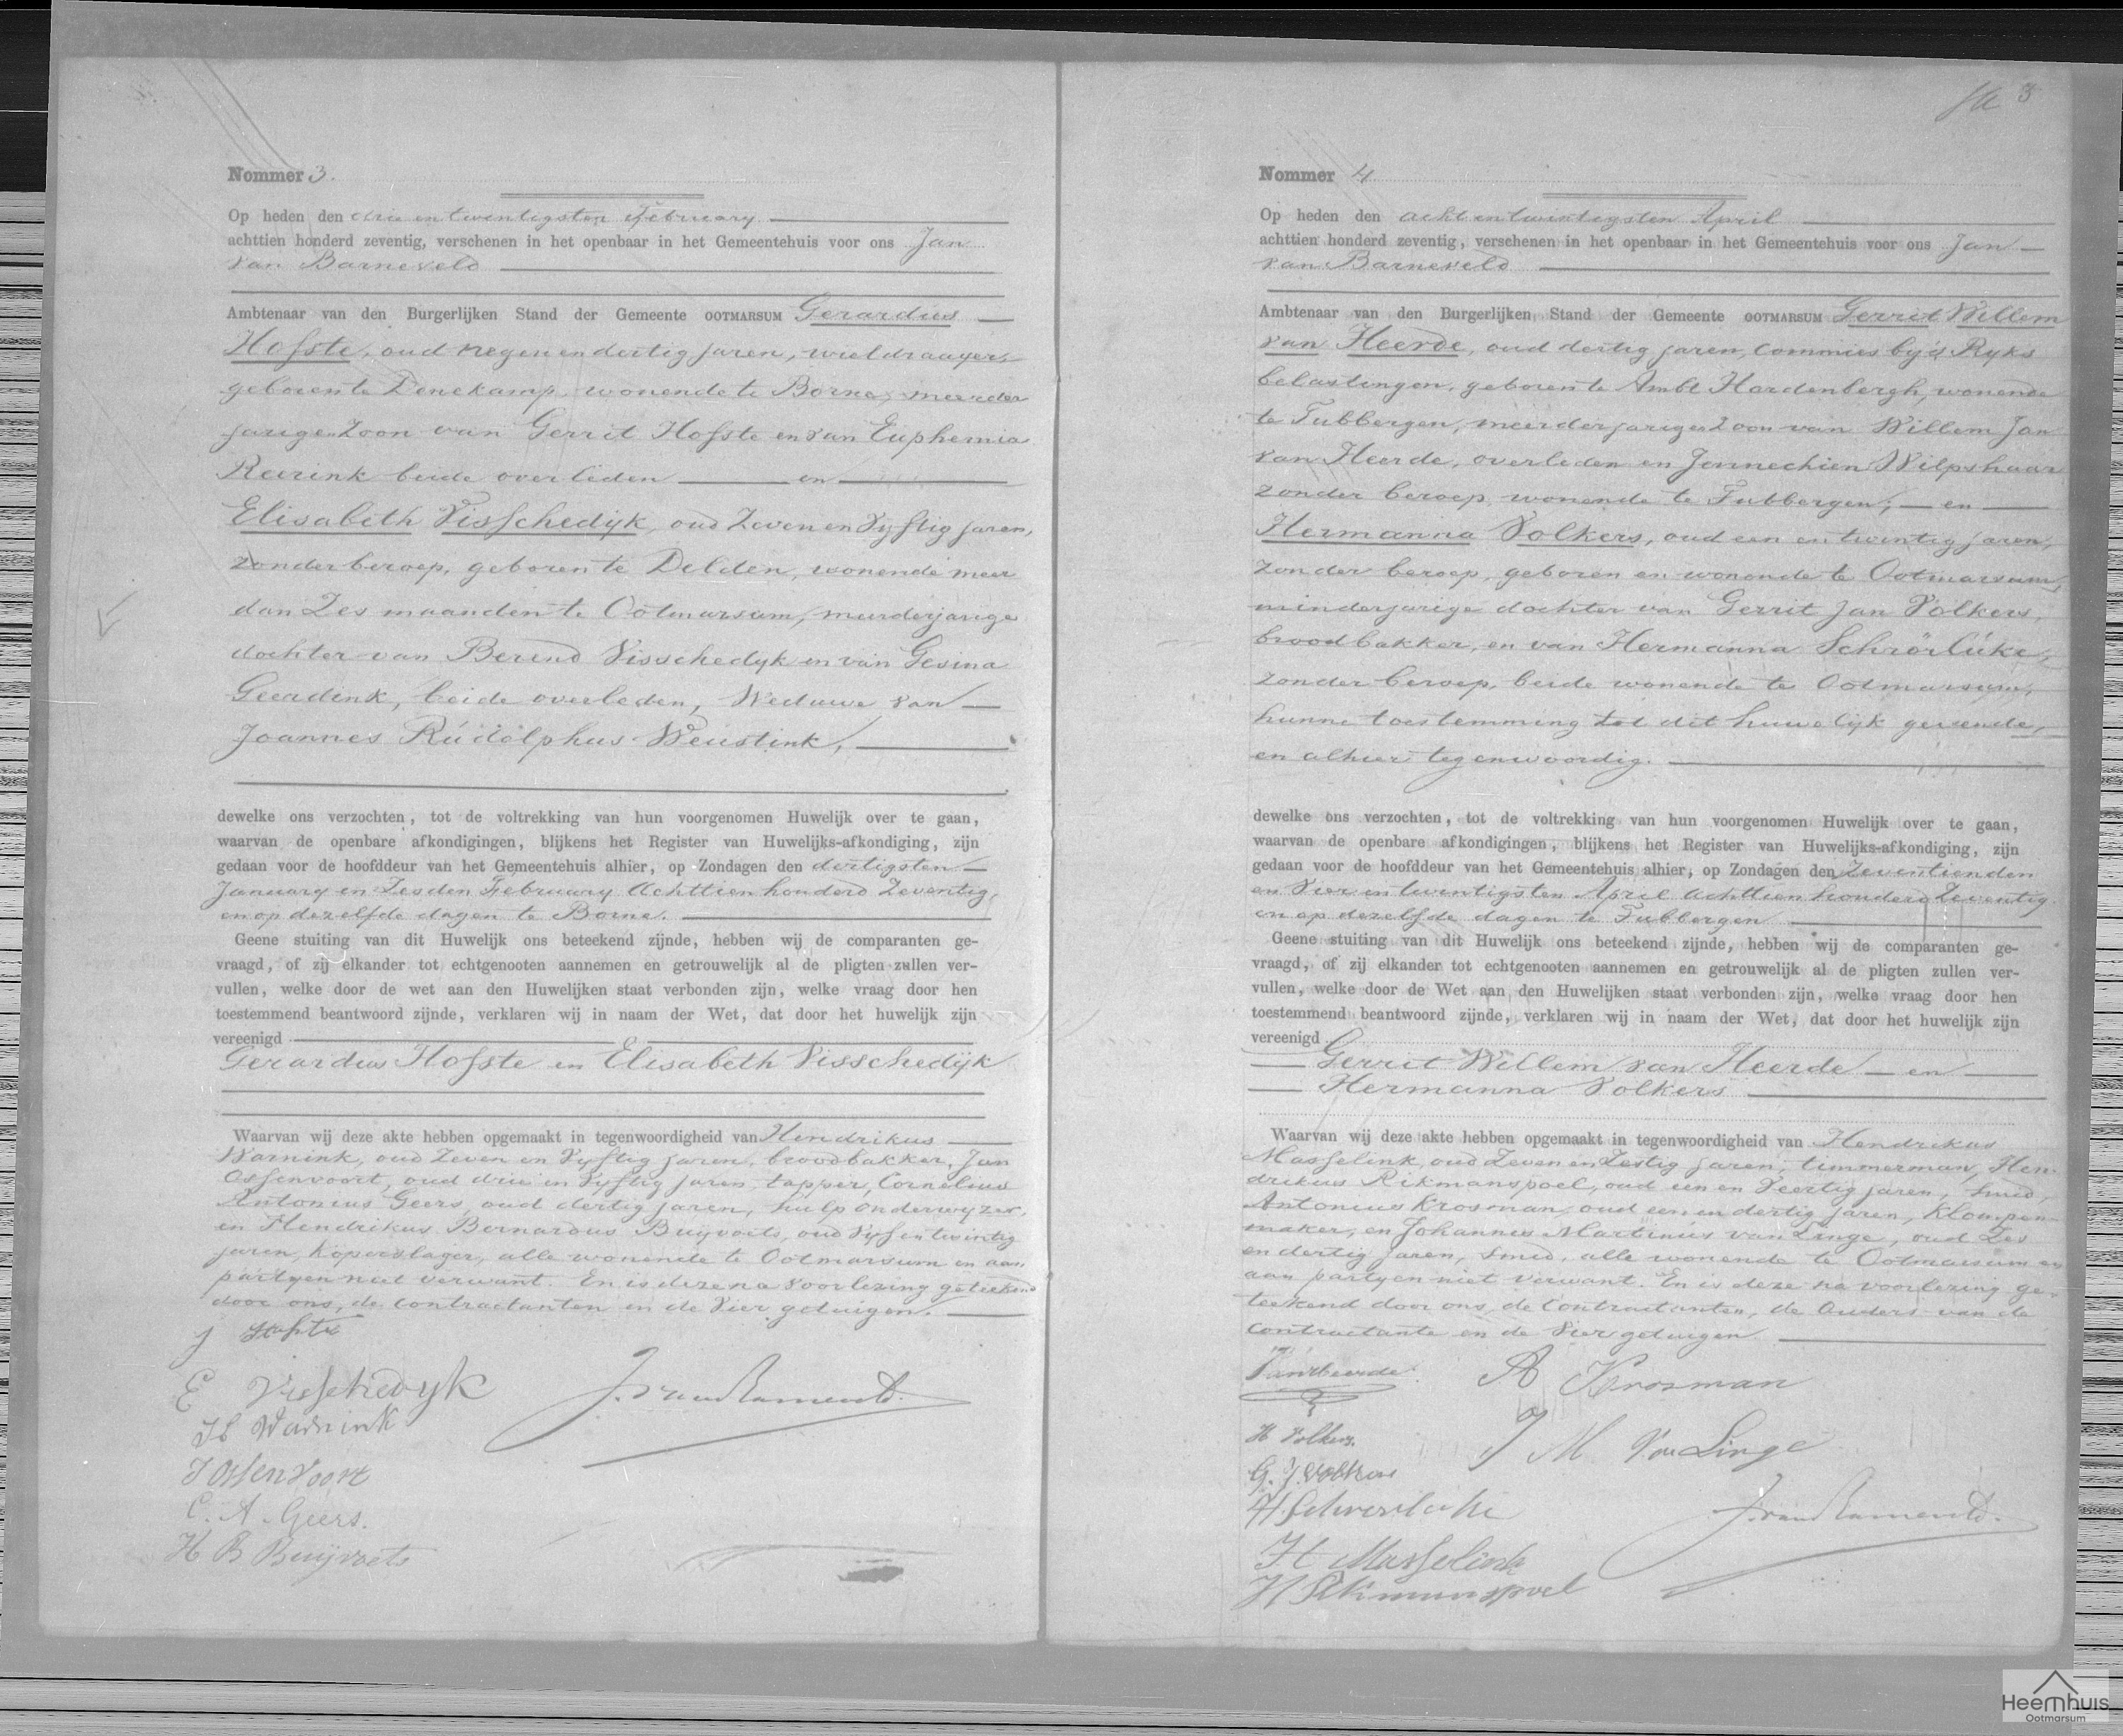 Nommer 3.
Op heden den drie en twentigsten February
achttien honderd zeventig, verschenen in het openbaar in het Gemeentehuis voor ons Jan
van Barneveld
Ambtenaar van den Burgerlijken Stand der Gemeente OOTMARSUM Gerardus
Hofste, oud negen en dertig jaren, wieldraayer,
geboren te Denekamp, wonende te Borne, meerder
jarige Zoon van Gerrit Hofste en van Euphemia
Reerink beide overleden en
Elisabeth Visschedijk, oud Zeven en Vijftig jaren,
zonder beroep, geboren te Delden, wonende meer
dan Zes maanden te Ootmarsum, meerderjarige
dochter van Berend Visschedyk en van Gesina
Geerdink, beide overleden, Weduwe van
Joannes Rúdolphus Weustink,
dewelke ons verzochten, tot de voltrekking van hun voorgenomen Huwelijk over te gaan,
waarvan de openbare afkondigingen, blijkens het Register van Huwelijks-afkondiging, zijn
gedaan voor de hoofddeur van het Gemeentehuis alhier, op Zondagen den dertigsten
January en Zesden February Achttien honderd Zeventig,
en op dezelfde dagen te Borne.
Geene stuiting van dit Huwelijk ons beteekend zijnde, hebben wij de comparanten ge-
vraagd, of zij elkander tot echtgenooten aannemen en getrouwelijk al de pligten zullen ver-
vullen, welke door de wet aan den Huwelijken staat verbonden zijn, welke vraag door hen
toestemmend beantwoord zijnde, verklaren wij in naam der Wet, dat door het huwelijk zijn
vereenigd
Gerardus Hofste en Elisabeth Visschedijk
Waarvan wij deze akte hebben opgemaakt in tegenwoordigheid van Hendrikus
Warnink, oud Zeven en Vyftig jaren, broodbakker, Jan
Ossenvoort, oud drie en Vyftig jaren, tapper, Cornelius
Antonius Geers, oud dertig jaren, hulp onderwyzer,
en Hendrikus Bernardus Buijvoets, oud Vyf en twintig
jaren, koperslager, alle wonende te Ootmarsum en aan
partyen niet verwant. En is deze na voorlezing geteekend
door ons, de contractanten en de Vier getuigen.
J Hofste
E Visschedyk
J. van Barneveld.
H Warnink
J Ossenvoort
C. A. Geers.
H B Buijvoets
3
Nommer 4
Op heden den acht en twintigsten April
achttien honderd zeventig, verschenen in het openbaar in het Gemeentehuis voor ons Jan
van Barneveld
Ambtenaar van den Burgerlijken Stand der Gemeente OOTMARSUM Gerrit Willem
van Heerde, oud dertig jaren, Commies by 's Ryks
belastingen, geboren te Ambt Hardenbergh, wonende
te Tubbergen, meerderjarige Zoon van Willem Jan
van Heerde, overleden en Jennechien Wilpshaar
zonder beroep wonende te Tubbergen; en
Hermanna Volkers, oud een en twintig jaren,
zonder beroep, geboren en wonende te Ootmarsum,
minderjarige dochter van Gerrit Jan Volkers,
broodbakker, en van Hermanna Schrörlúke,
zonder beroep, beide wonende te Ootmarsum,
hunne toestemming tot dit huwelijk gevende,
en alhier tegenwoordig.
dewelke ons verzochten, tot de voltrekking van hun voorgenomen Huwelijk over te gaan,
waarvan de openbare afkondigingen, blijkens het Register van Huwelijks-afkondiging, zijn
gedaan voor de hoofddeur van het Gemeentehuis alhier, op Zondagen den Zeventienden
en Vier en twentigsten April Achttien honderd Zeventig
en op dezelfde dagen te Tubbergen
Geene stuiting van dit Huwelijk ons beteekend zijnde, hebben wij de comparanten ge-
vraagd, of zij elkander tot echtgenooten aannemen en getrouwelijk al de pligten zullen ver-
vullen, welke door de Wet aan den Huwelijken staat verbonden zijn, welke vraag door hen
toestemmend beantwoord zijnde, verklaren wij in naam der Wet, dat door het huwelijk zijn
vereenigd
Gerrit Willem van Heerde en
Hermanna Volkers
Waarvan wij deze akte hebben opgemaakt in tegenwoordigheid van Hendrikus
Masselink, oud Zeven en Zestig jaren, timmerman, Hen-
drikus Rikmanspoel, oud een en Veertig jaren, smid,
Antonius Krosman, oud een en dertig jaren, klompen-
maker, en Johannes Martinús van Linge, oud Zes
en dertig jaren, smid, alle wonende te Ootmarsum en
aan partyen niet verwant. En is deze na voorlezing ge-
teekend door ons, de Contractanten, de Ouders van de
contractante en de Vier getuigen
van Heerde.
A Krosman
H Volkers.
J M Van Linge
G. J. Volkers
H. Schreurlúke
J. van Barneveld.
H Masselink
H Rikmanspoel
Heemhuis
Ootmarsum